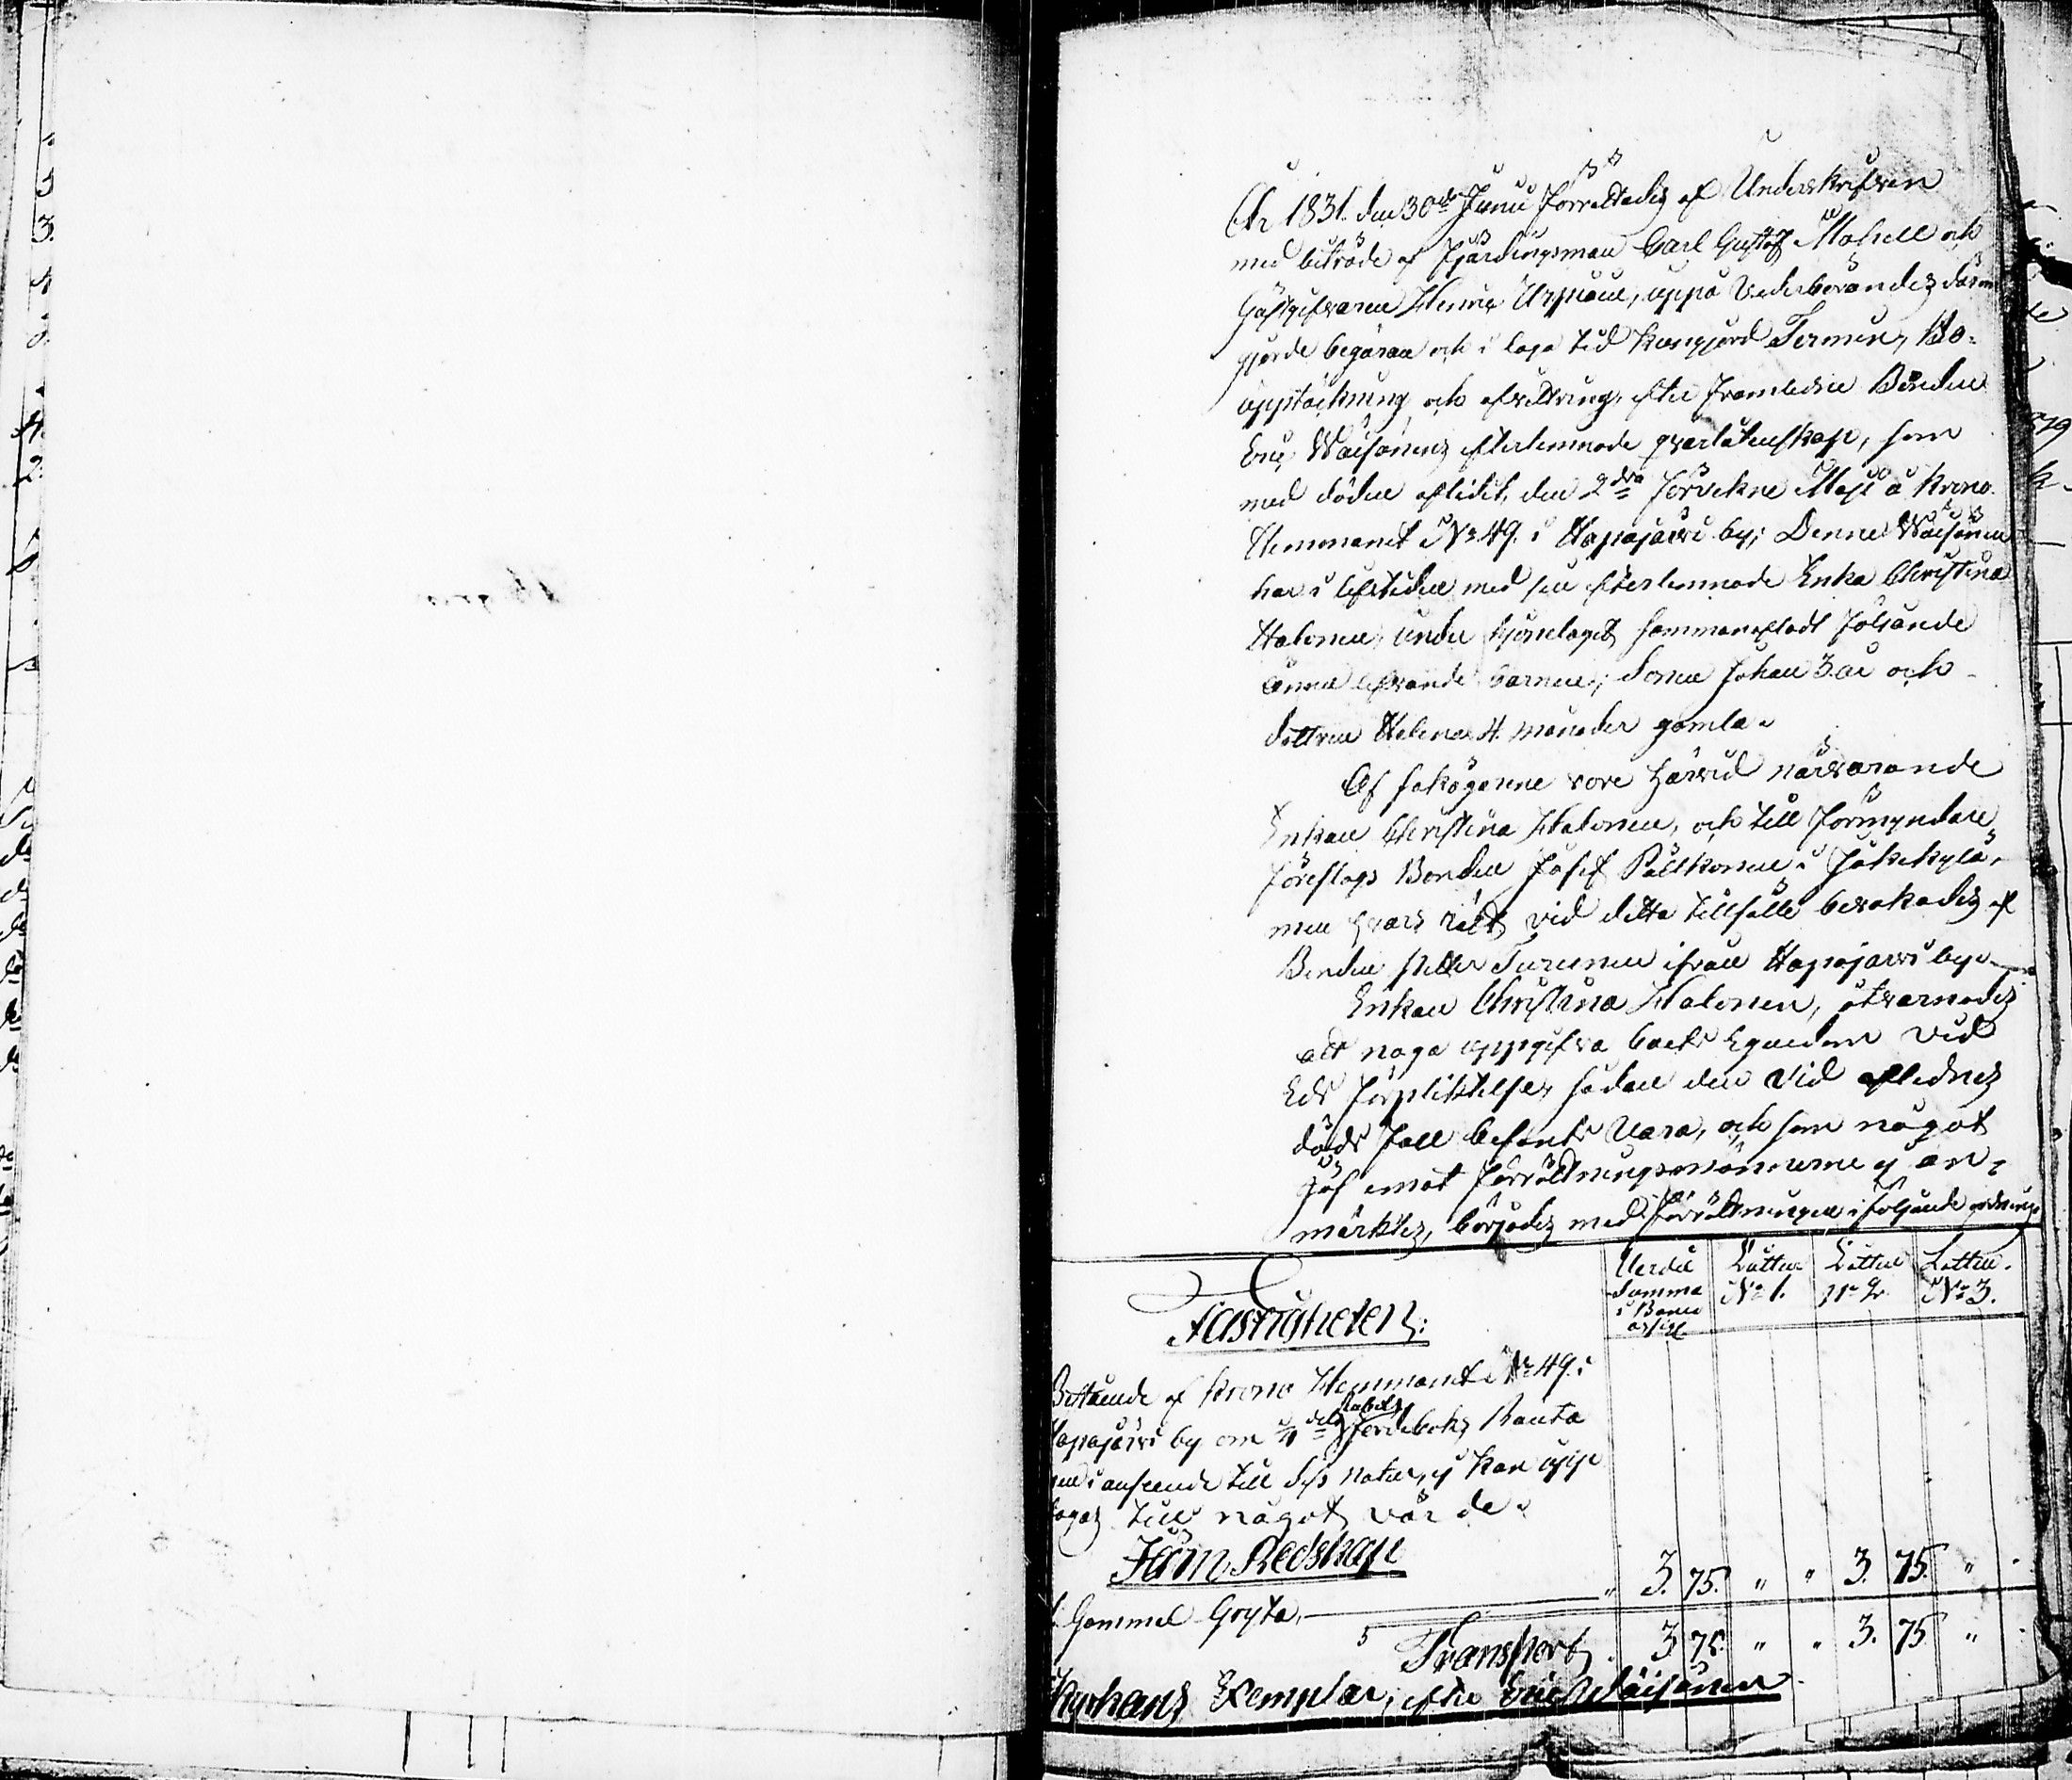 År 1831. den 30de Junii förrättades af Underskrifven
med biträde af Fjärdingsman Carl Gustaf Mahell och
Gästgifvaren Henric Urpiain, uppå Vederbörandes därom
gjorde begäran och i laga tid kungjord Termin, Bo=
uppteckning och afvittring, efter framledne Bonden
Eric Wäisänens efterlemnade qvarlåtenskap, som
med döden aflidit, den 2dra förvekne Maji å Krono
Hemmanet No 49. i Hapajärvi by; Denne Wäisänen
har i lifstiden med sin efterlemnade Enka Christina
Halonen, under hjonelaget sammanafladt följande
ännu lefvande barnen; Sonen Johan 3. år och
dottren Helena 4. månader gamla.
Af sakägarene vore härvid närvarande
Enkan Christina Halonen, och till förmyndare
föreslogs Bonden Josef Pålkonen i Jokikylä,
men hvars rätt vid detta tillfälle bevakades af
Bonden Petter Turunen ifrån Hapajärvi by.
Enkan Christina Halonen, åtvarnades
att noga uppgifva boets Egendom vid
Eds förpliktelse, sådan den vid aflednes
döds fall befants vara, och som något
jäf emot förrättningsmännerne ej an=
märktes, börjades med förrättningen i följande ordning
Fastigheten:
Verdie Summa i Banco assign.
Lotten No 1.
Lotten No 2.
Lotten No 3.
Bestående af Krono Hemmanet No 49. i
Hapajärvi by om 1/4 dels Jordeboks Ränta
i anseende till dess natur, ej kan upp
tagas till något värde.
Järn Redskap
1. Gammal Gryta, — " 3. 75. " " 3. 75. "
Transport 3 75. " " 3. 75 "
Kyrkans Exemplar, efter Eric Wäisänen